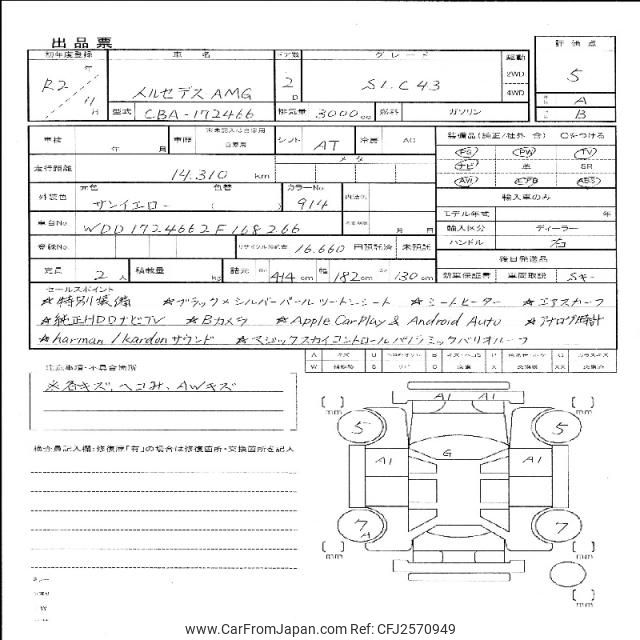 出品票
初年度登録 車名 ドア数 グレード 駆動 評価点
R2 年 11 月 メルセデス AMG 2 D SLC43 2WD 4WD 5
型式 CBA-172466 排気量 3000 cc 燃料 ガソリン A B
車検 年 月 車歴 自家用 シフト AT 冷房 AC 装備品(純正/社外 含) ○をつける
走行距離 14.310 km メータ PS PW TV
ナビ 革 SR
AW エアB ABS
外装色 元色 色替 カラーNo.
サンイエロー ( ) 914 輸入車のみ
モデル年式 年
車台No WDD1724662F168266 輸入区分 ディーラー
登録No. リサイクル預託金 16.660 円預託済 未預託 ハンドル 右
後日発送品
定員 2 人 積載量 kg 諸元 414 cm 幅 182 cm 130 cm 新車保証書 車両取説 Sキー
セールスポイント
☆特別装備 ☆ブラック×シルバーパールツートンシート ☆シートヒーター ☆エアスカーフ
☆純正HDDナビTV ☆Bカメラ ☆Apple CarPlay & Android Auto ☆アナログ時計
☆harman/kardonサウンド ☆マジックスカイコントロールパノラミックバリオルーフ
注意事項・不具合箇所
※各キズ、ヘコみ、AWキズ
検査員記入欄:修復歴「有」の場合は修復箇所・交換箇所を記入
[ ] mm A1 A1 [ ] mm
5 5
A1 G A1
7 7
[ ] mm [ ] mm
[ ] mm
www.CarFromJapan.com Ref: CFJ2570949